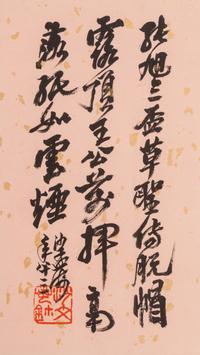 張旭三盃草聖傳脫帽
露頂王公前揮毫
落紙如雲煙
沙孟海